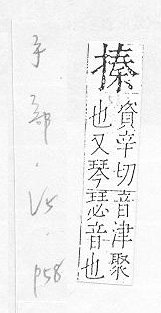 搸
資辛切音津聚
也又琴瑟音也
手部.V5.P58